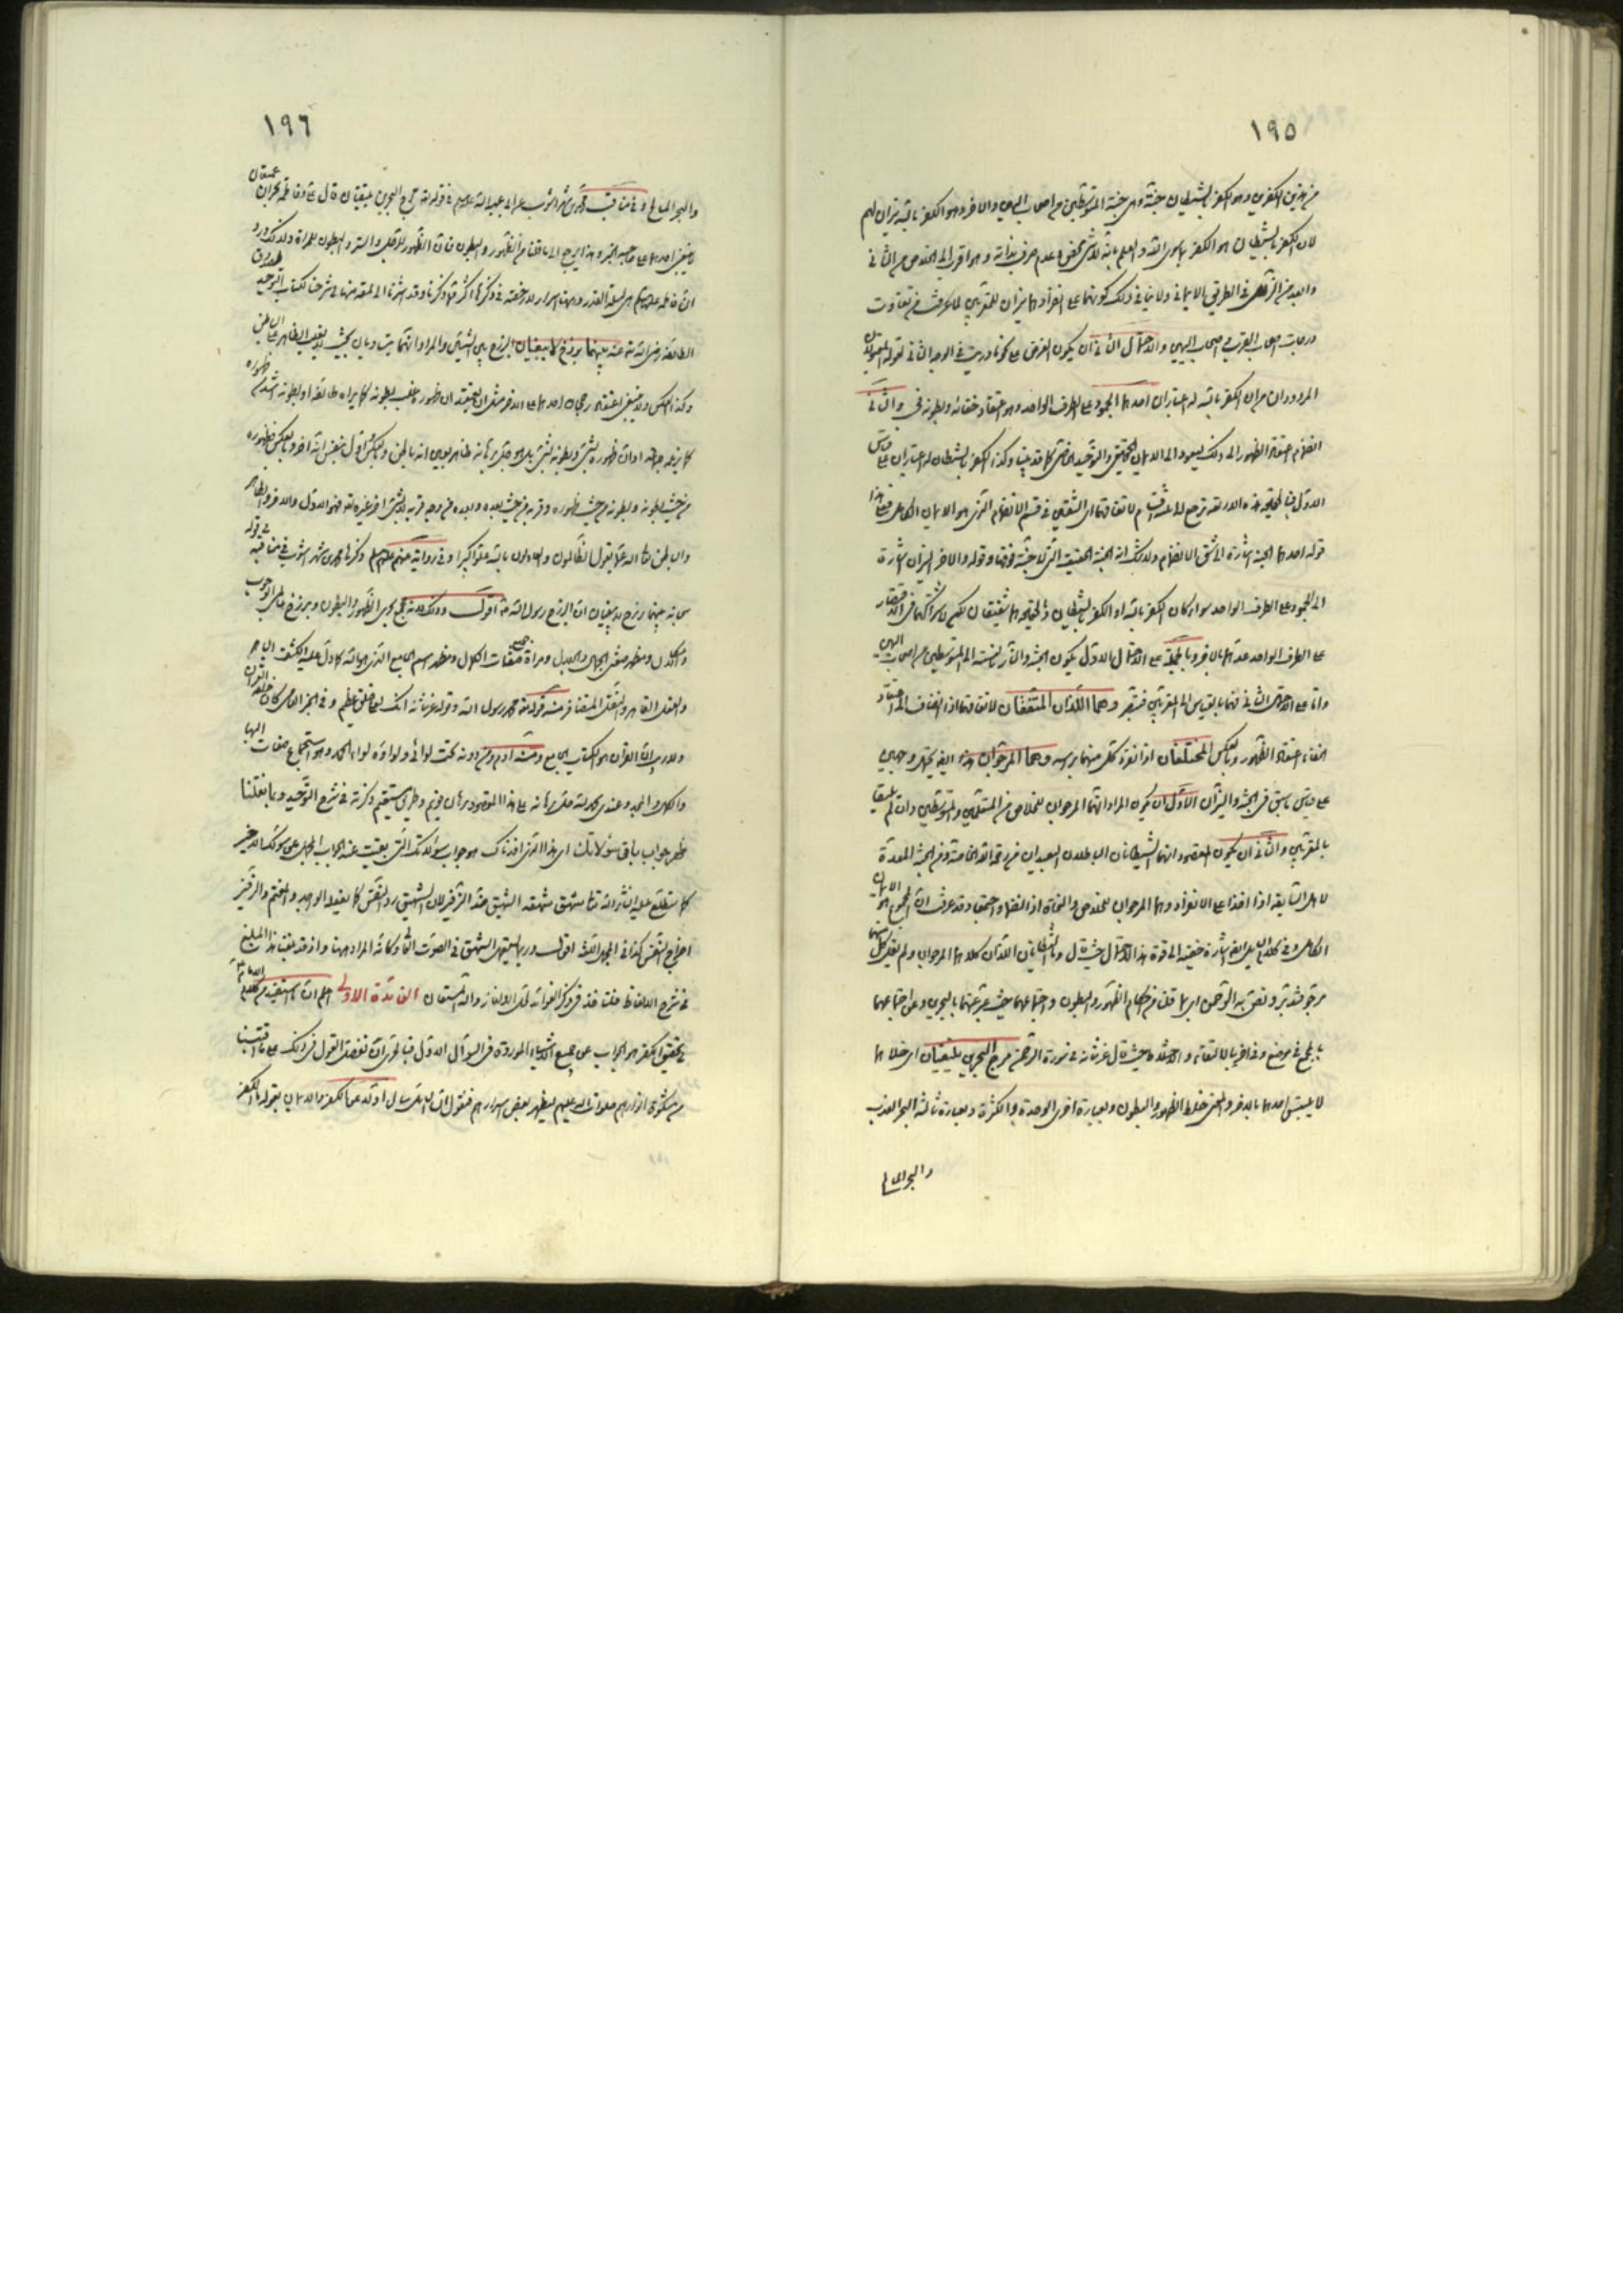 ١٩٥
من هذين الكفرين وهو الكفر بالشيطان جنة وهى جنة المتوسطين من اصحاب اليمين والاخر وهو الكفر بالله نيران لهم
لان الكفر بالشيطان هو الكفر بما سوى الله والعلم بانه لا شىء محض وعدم صرف بذاته وهو اقرب الى الخلاص من الثانى
وابعد من فى الطريق الايمانى ولا ينافى ذلك كونهما على انفرادهما نيران للمقربين لما عرفت من تفاوت
درجات اصحاب القرب من اصحاب اليمين والاحتمال الثانى ان يكون الغرض على ما دريت فى الوجه الثانى لقوله المقبولان
المردودان من ان الكفر بالله له اعتباران احدهما الجمود على الطرف الواحد وهو اعتقاد خفائه وبطونه فى والثانى
انضمام اعتقاد الظهور الى ذلك ليعود الى الايمان الحقيقى والتوحيد الخاصى كما قد بينا وكذا الكفر بالشيطان له اعتباران على قياس
الاول فبالحقيقة هذه الاربعة ترجع الى ثلثة اقسام لاتفاقهما اى الشقين فى قسم الانضمام الذى هو الايمان الكامل فعلى هذا
قوله احدهما الجنة اشارة الى شق الانضمام ولا شك انه الجنة الحقيقية التى لا جنة فوقها وقوله والاخر النيران اشارة
الى الجمود على الطرف الواحد سواء كان الكفر بالله او الكفر بالشيطان وفى الحقيقة هما شقيقان لكن لاشتراكهما فى الاقتصار
على الطرف الواحد عدّهما بالاخر وبالجملة على الاحتمال الاول يكون الجنة والنار بالنسبة الى المتوسطين من اصحاب اليمين
واما على الاحتمال الثانى فهما بالقياس الى المقربين فتبصر وهما اللذان المتفقان لاتفاقهما اذا انضاف الى اعتقاد
الخفاء اعتقاد الظهور وبالعكس المختلفان اذا انفرد كل منهما براسه وهما المرجوان هذا ايضا يحتمل وجهين
على قياس ما سبق فى الجنة والنيران الاول ان يكون المراد انهما المرجوان للخلاص من المتقين والمتوسطين وان لم يليقا
بالمقربين والثانى ان يكون المقصود انهما الشيطانان الباطلان البعيدان من رحمة الله الخاصة ومن الجنة المعدة
لاهل السابقة اذا اخذا على الانفراد وهما المرجوان للخلاص والنجاة اذا انضما واجتمعا وقد عرفت ان المجموع هو الايمان
الكامل وفى كلام السائل ايضا اشارة خفية الى قوة هذا الاحتمال حيث قال وما الشيطانان اللذان كلاهما المرجوان ولم يقل كل منهما
مرجو فتدبر ونص به التوحيد اى بما قلنا من حكم الظهور والبطون واجتماعهما حيث عبر عنهما بالبحرين وعن اجتماعهما
بالجمع فى موضع وفى اخر بالالتقاء والاختلاط حيث قال عز شانه فى سورة الرحمن مرج البحرين يلتقيان اى خلاهما
لا يلتبس احدهما بالاخر والمعنى خلط الظهور والبطون وبعبارة اخرى الوحدة والكثرة وبعبارة ثالثة البحر العذب
والبحر المالح
١٩٦
والبحر المالح وفى مناقب محمد بن شهر اشوب عن ابى عبد الله عليه السلام فى قوله تعالى مرج البحرين يلتقيان قال على وفاطمة بحران عميقان
لا يبغى احدهما على صاحبه الخبر وهذا يرجع الى ما قلنا من الظهور والبطون فان الظهور للرجل والستر والبطون للمراة ولذلك ورد
ان فاطمة عليها السلام هى ليلة القدر وههنا اسرار لا رخصة فى ذكرها اكثر مما ذكرنا وقد اشرنا الى لمعة منها فى شرحنا لكتاب التوحيد لصدوق
الطائفة رضى الله تعالى عنه بينهما برزخ لا يبغيان البرزخ بين الشيئين والمراد انهما يتساويان بحيث لا يغلب الظاهر على الباطن
وكذا العكس ولا ينبغى اعتقاد رجحان احدهما على الاخر مثل ان يعتقد ان ظهوره غلب بطونه كما يراه طائفة او بطونه اشد من ظهوره
كما يزعمه جماعة او ان ظهوره بشىء وبطونه بشىء بل هو جل برهانه ظاهر بعين انه باطن وبالعكس واول بنفس انه اخر وبالعكس فظهوره
من حيث بطونه وبطونه من حيث ظهوره وقربه من حيث بعده وبعده من وجه قربه لا بشىء اخر غيره تعالى فهو الاول والاخر والظاهر
والباطن تعالى الله عما يقول الظالمون والجاهلون بالله علوا كبيرا وفى رواية عنهم عليهم السلام ذكرها محمد بن شهر اشوب فى مناقبه فى قوله
سبحانه بينهما برزخ لا يبغيان ان البرزخ رسول الله اقول وذلك لانه مجمع بحرى الظهور والبطون وبرزخ عالمى الوجوب
والامكان ومظهر صفتى الجمال والجلال ومراة جميع صفات الكمال ومظهر اسم الجامع الذى هو الله كما دل عليه الكشف الباهر
والعقل القاهر والنقل المتضافر منه قوله تعالى محمد رسول الله وقوله عز شانه انك لعلى خلق عظيم وفى الخبر الخاصى كان خلقه القران
ولا ريب ان القران هو الكتاب الجامع ومنه ادم ومن دونه تحت لوائى ولواؤه لواء الحمد وهو استجماع صفات البهاء
والكمال والمجد وعندى بحمد الله جل برهانه على هذا المقصود برهان قويم وطريق مستقيم ذكرته فى شرح التوحيد وبما نقلنا
ظهر جواب باقى سؤالاتك اى هذا الذى افدناك هو جواب سؤالاتك التى بقيت عند الجواب الجمل عن سؤالك الاخير
كما ستطلع عليه انشاء الله تعالى فشهق شهقة الشهيق ضد الزفير لان الشهيق رد النفس كما يفعله الواجد والمغتم والزفير
اخراج النفس كذا فى المجمل اللغة اقول وربما يستعمل الشهيق فى الصوت العالى وكانه المراد ههنا واذ قد بلغنا هذا المبلغ
فى شرح الالفاظ فلنأخذ فى ذكر الفوائد لحل الالغاز والله المستعان الفائدة الاولى اعلم ان المستفيد من كلام الامام عليه السلام
فى تحقيق الكفر هو الجواب عن جميع الاشياء الموردة فى السؤال الاول فبالحرى ان نفصل القول فى ذلك على ما اقتبسنا
من مشكوة انوارهم صلوات الله عليهم ليظهر بعض اسرارهم فنقول ان السائل سال اولا عن الكفر والايمان بقوله ما الكفر